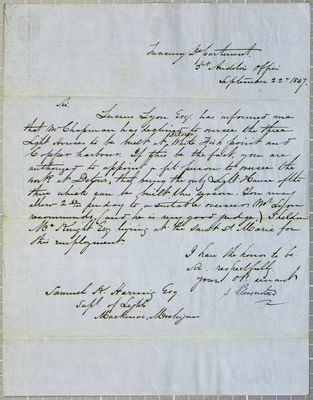 Treasury Department
5th Auditor's Office
September 22d 1847.
Sir.
Lucius Lyon Esq. has informed me
that Mr Chapman has declined to oversee the three
Light Houses to be built at Detour, White Fish point and
Copper harbour. If this be the fact, you are
authorized to appoint a fit person to oversee the
work at Detour, that being the only Light House of the
three which can be built this season. You may
allow 2 per day to a suitable overseer. Mr Lyon
recommends (and he is very good judge) Sheldon
McKnight Esq living at the Sault St Marie for
this employment
I have the honor to be
Sir respectfully
your Ob. servant
S. Pleasonton
Samuel K Haring Esq
Supt of Lights
Mackinac, Michigan